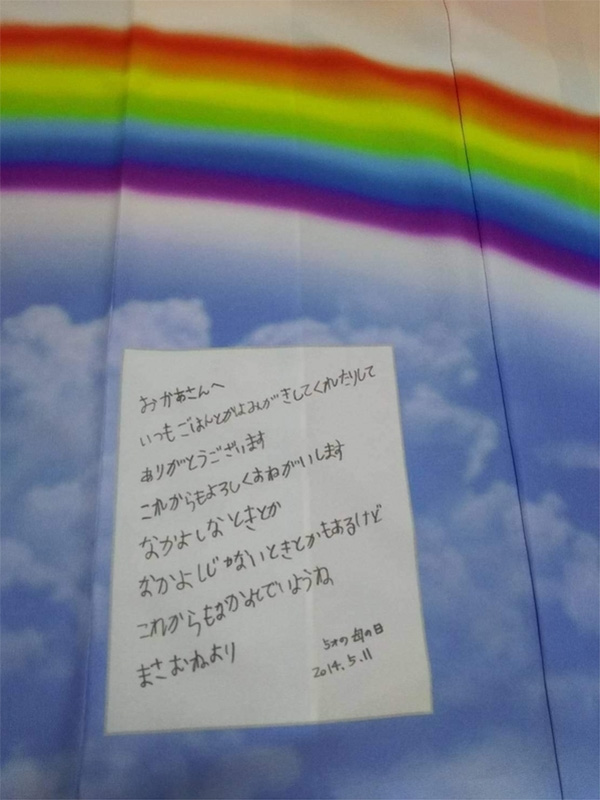 おかあさんへ
いつもごはんとかよみがきしてくれたりして
ありがとうございます
これからもよろしくおねがいします
なかよしなときとか
なかよしじゃないときとかもあるけど
これからもなかよしでいようね
まさむねより
5才の母の日
2014.5.11